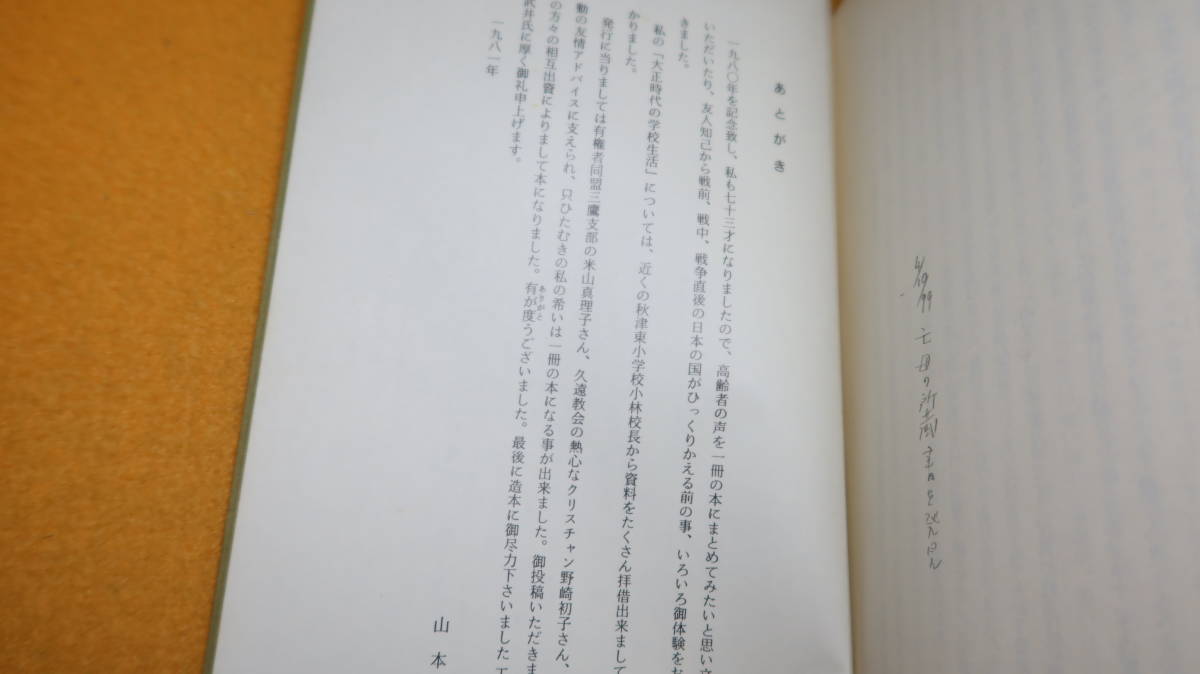 あとがき
一九八〇年を記念致し、私も七十三才になりましたので、高齢者の声を一冊の本にまとめてみたいと思い立
いただいたり、友人知己から戦前、戦中、戦争直後の日本の国がひっくりかえる前の事、いろいろ御体験をお
きました。
私の「大正時代の学校生活」については、近くの秋津東小学校小林校長から資料をたくさん拝借出来まして
かりました。
発行に当りましては有権者同盟三鷹支部の米山真理子さん、久遠教会の熱心なクリスチャン野崎初子さん、
動の友情アドバイスに支えられ、只ひたむきの私の希いは一冊の本になる事が出来ました。御投稿いただきま
の方々の相互出資によりまして本になりました。有が度うございました。最後に造本に御尽力下さいました
ありがと
武井氏に厚く御礼申上げます。
一九八一年
山本